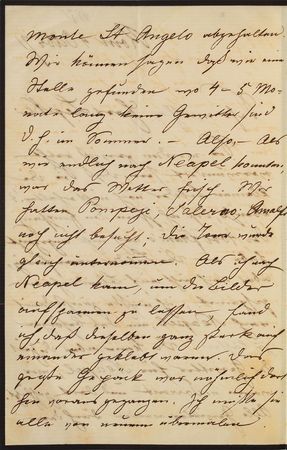 monte St Angelo abgehalten.
Wir können sagen daß wir eine
Stelle gefunden wo 4-5 Mo-
nate lang keine Gewitter sind
d. h. im Sommer. — Also, — Als
wir endlich nach Neapel konnten,
war das Wetter frisch. Wir
hatten Pompeji, Salerno, Amalfi
noch nicht besucht. Die Tour wurde
gleich unternommen. Als ich nach
Neapel kam, um die Bilder
aufspannen zu lassen, fand
ich, daß dieselben ganz stark an
einander geklebt waren. Das
große Gepäck war nähmlich dort
hin voraus gegangen. Ich mußte sie
alle von neuem übermalen.